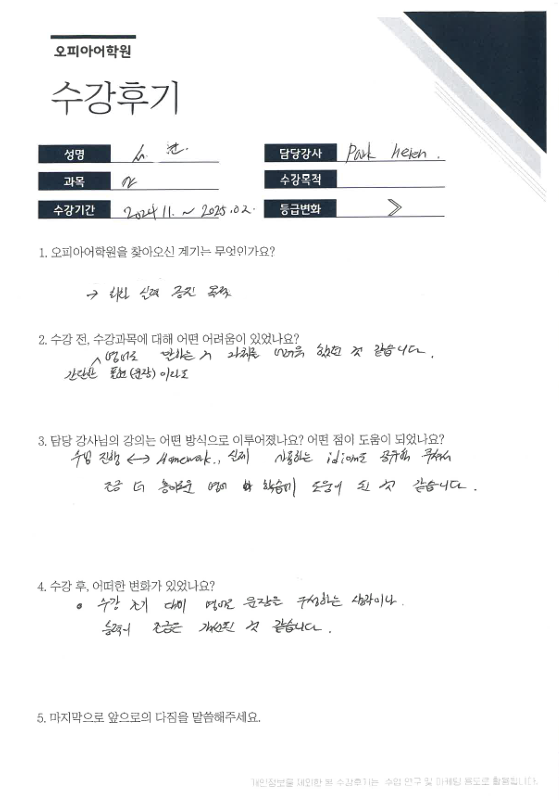 오피아어학원
수강후기
성명
담당강사 Park Helen.
과목
수강목적
수강기간 2024 11. ~ 2025.02.
등급변화
1. 오피아어학원을 찾아오신 계기는 무엇인가요?
→ 회화 실력 증진 목적
2. 수강 전, 수강과목에 대해 어떤 어려움이 있었나요?
영어로 말하는 거 자체를 어려워 했던 것 같습니다.
간단한 표현(문장)이라도
3. 담당 강사님의 강의는 어떤 방식으로 이루어졌나요? 어떤 점이 도움이 되었나요?
수업 진행 ↔ Homework, 실제 사용하는 idiom도
조금 더 영어 학습에 도움이 된 것 같습니다.
4. 수강 후, 어떠한 변화가 있었나요?
수강 초기 대비 영어로 문장을 구성하는 생각이나
능력이 조금은 개선된 것 같습니다.
5. 마지막으로 앞으로의 다짐을 말씀해주세요.
개인정보를 제외한 본 수강후기는 수업 연구 및 마케팅 용도로 활용됩니다.